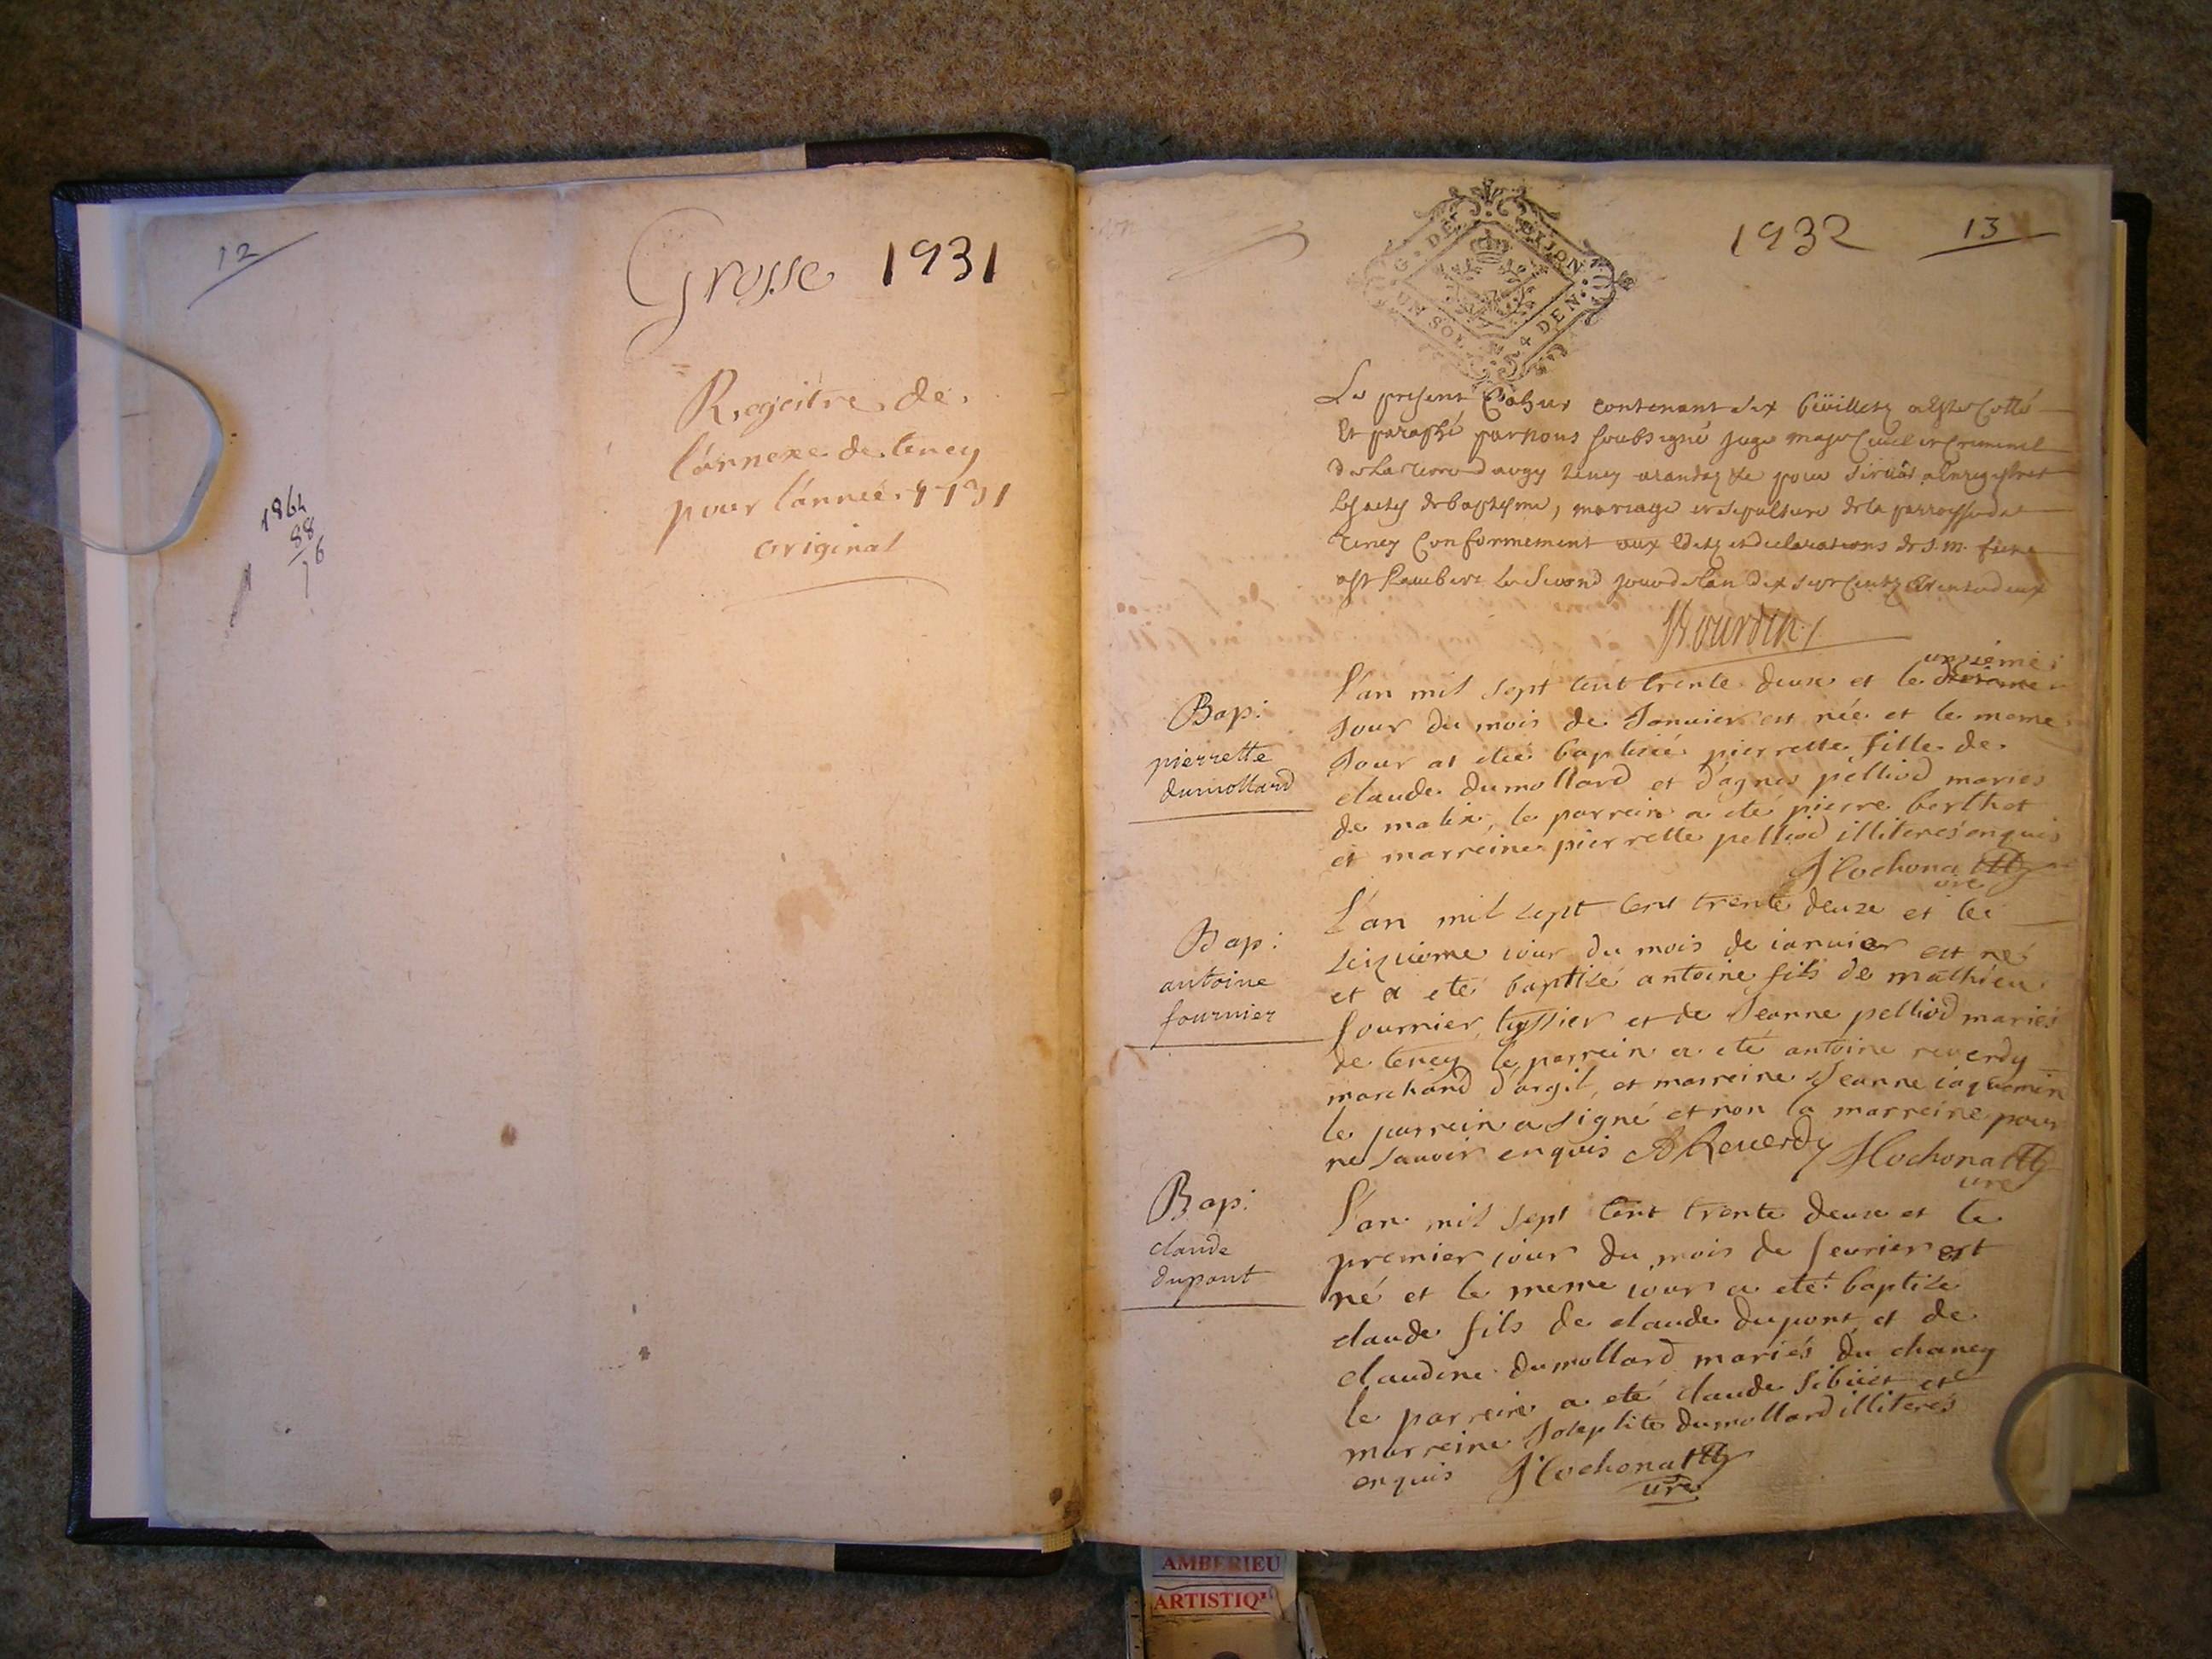 12
Grosse 1931
Regeitre de
l'annexe de teney
pour l'année 1731
original
1864
88
76
1932
13
G. DE DIJON
UN SOL 4 DEN.
Le present Cahier contenant six feüillets a esté Cotté
Et paraphé par nous soubsigné juge maje Civil et Criminel
de la terre d'
teney pour servir a Enregistrer
les actes de baptesme, mariage et sepulture de la parroisse de
teney Conformement aux Edits et declarations de S. M.
a St Rambert le second jour de l'an dix sept Cents trente deux
Bourdin
Bap:
pierrette
dumollard
unzieme
L'an mil sept cent trente deux et le
Jour du mois de Januier est née et le meme
Jour at eteé baptizeé pierrette fille de
claude dumollard et d'agnes pelliod mariés
de malix, le parrein a eté pierre berthet
et marreine pierrette pelliod illiterés enquis
J Cochonat
ure
Bap:
antoine
fournier
L'an mil sept cent trente deux et le
seizieme iour du mois de ianuier est né
et a eté baptizé antoine fils de mathieu
fournier tissier et de Jeanne pelliod mariés
de teney le parrein a eté antoine reuerdy
marchand d'argit, et marreine Jeanne iaquemin
le parrein a signé et non la marreine pour
ne sauoir enquis A Reuerdy J Cochonat
ure
Bap:
claude
dupont
L'an mil sept cent trente deux et le
premier iour du mois de feurier est
né et le meme iour a eté baptize
claude fils de claude dupont et de
claudine dumollard mariés du chaney
le parrein a eté claude sibüet et
marreine Josephte dumollard illiterés
enquis J Cochonat
ure
AMBERIEU
ARTISTIQU